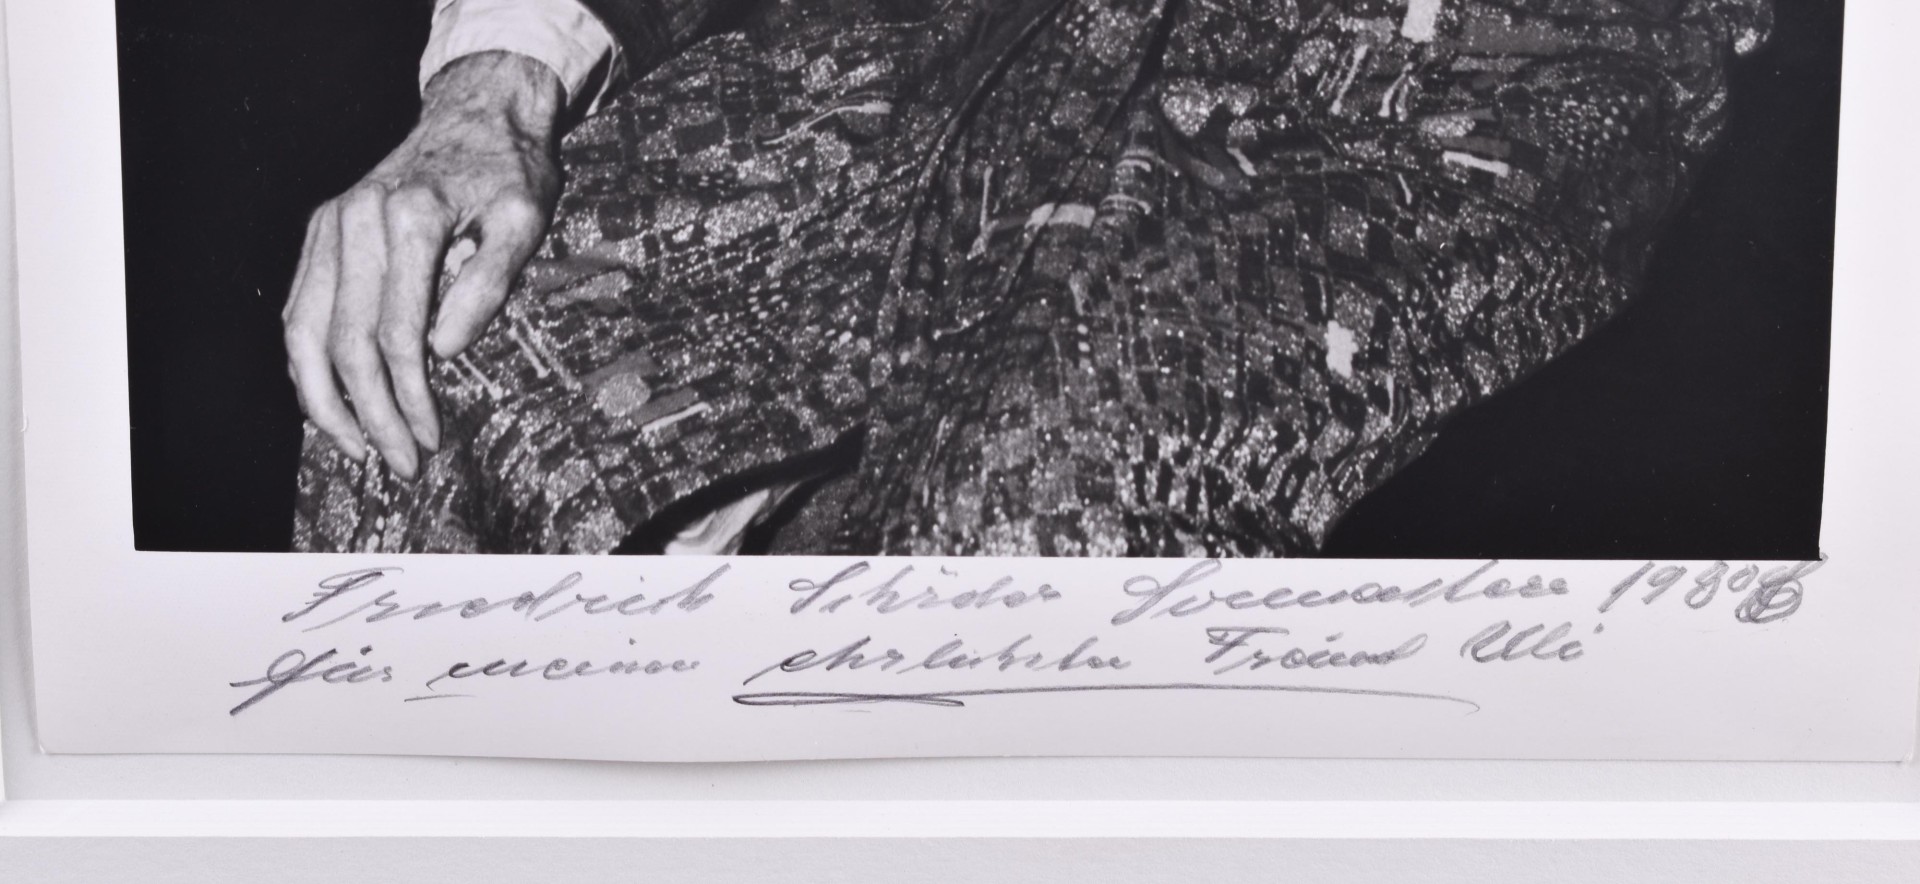 Friedrich Schröder Sonnenstern 1980
für meinen ehrlichsten Freund Ulli